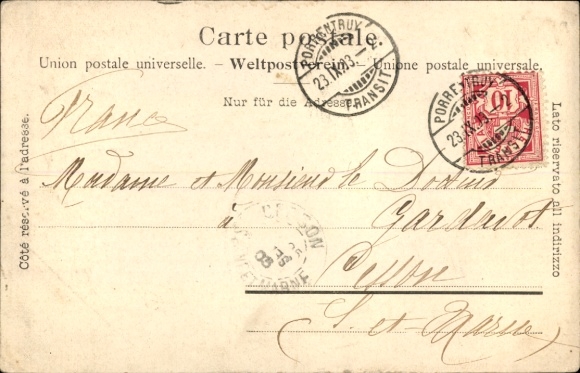 Carte postale.
Union postale universelle. – Weltpostverein. – Unione postale universale.
Nur für die Adresse.
Côté réservé à l'adresse.
Lato riservato all indirizzo
PORRENTRUY
23.IX.03
TRANSIT
PORRENTRUY
23.IX.03
TRANSIT
10
France
Madame et Monsieur le Docteur
à Gardrat
Cesson
S. et Marne
CESSON